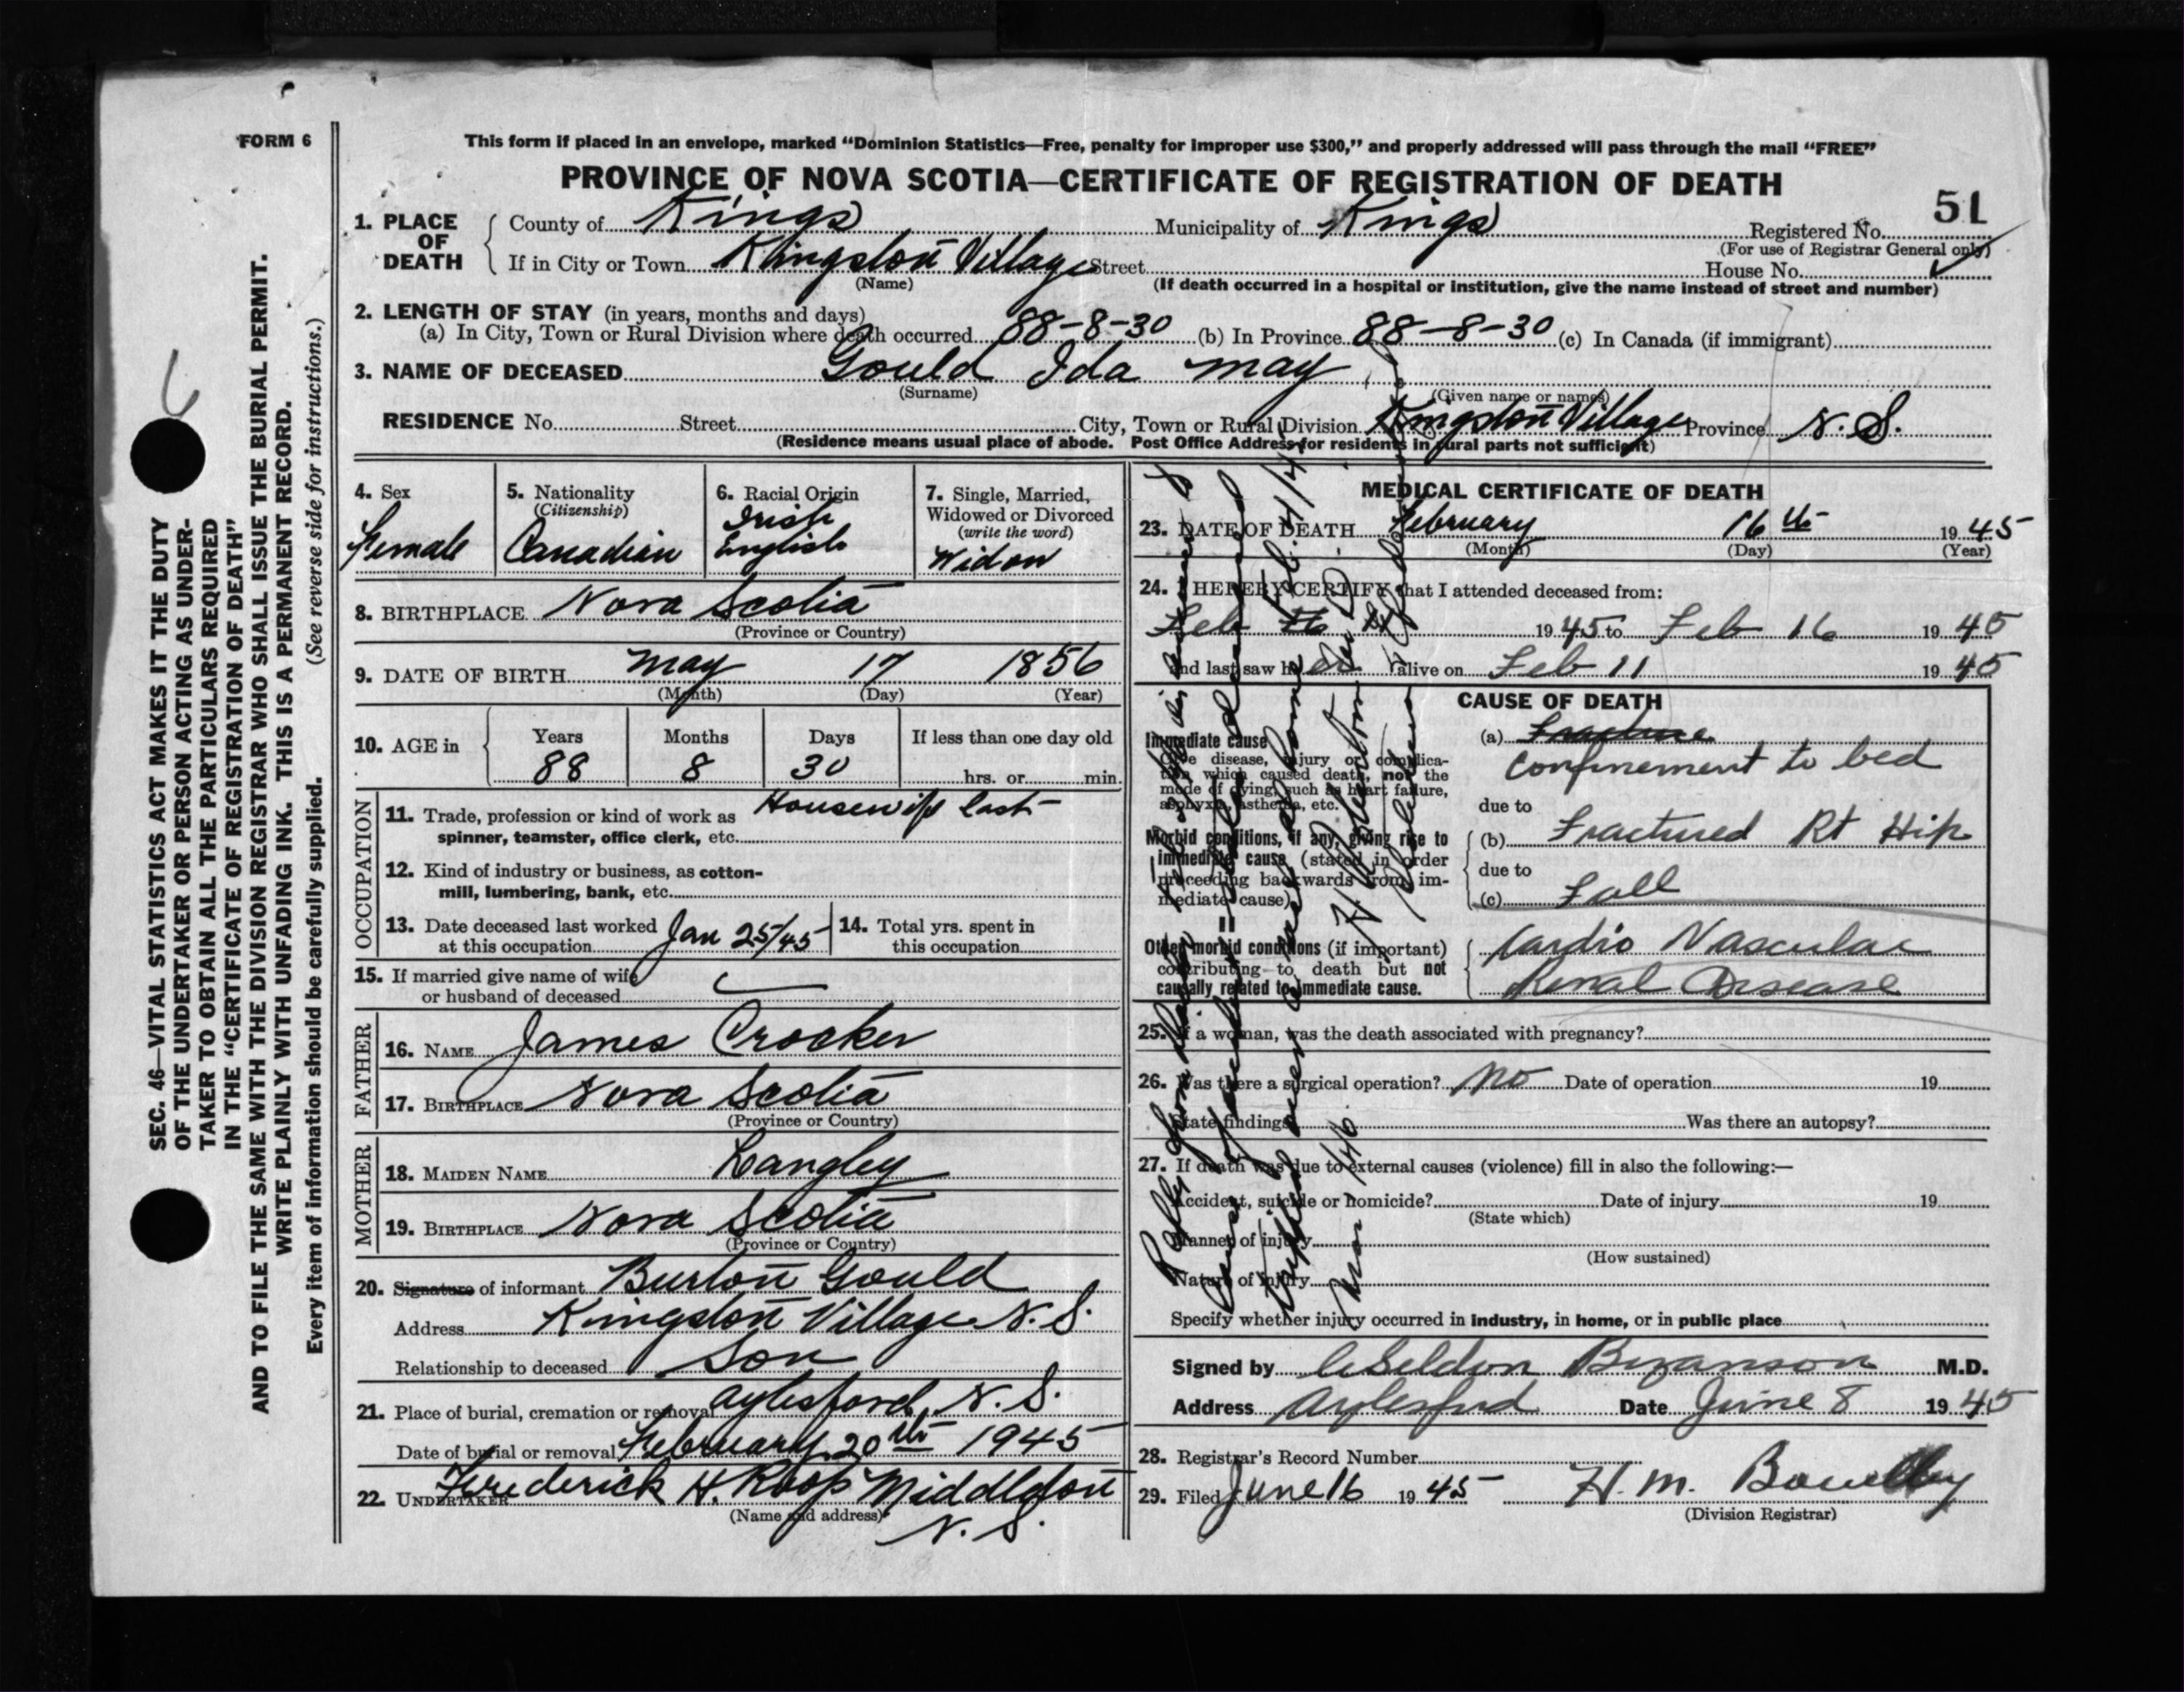 FORM 6
This form if placed in an envelope, marked "Dominion Statistics—Free, penalty for improper use $300," and properly addressed will pass through the mail "FREE"
PROVINCE OF NOVA SCOTIA—CERTIFICATE OF REGISTRATION OF DEATH
51
1. PLACE OF DEATH
County of Kings Municipality of Kings Registered No.
(For use of Registrar General only)
If in City or Town Kingston Village Street House No.
(Name) (If death occurred in a hospital or institution, give the name instead of street and number)
2. LENGTH OF STAY (in years, months and days)
(a) In City, Town or Rural Division where death occurred 88-8-30 (b) In Province 88-8-30 (c) In Canada (if immigrant)
3. NAME OF DECEASED Gould Ida May
(Surname) (Given name or names)
RESIDENCE No. Street City, Town or Rural Division Kingston Village Province N. S.
(Residence means usual place of abode. Post Office Address for residents in rural parts not sufficient)
4. Sex
Female
5. Nationality
(Citizenship)
Canadian
6. Racial Origin
Irish
English
7. Single, Married,
Widowed or Divorced
(write the word)
Widow
8. BIRTHPLACE Nova Scotia
(Province or Country)
9. DATE OF BIRTH May 17 1856
(Month) (Day) (Year)
10. AGE in
Years Months Days If less than one day old
88 8 30 hrs. or min.
OCCUPATION
11. Trade, profession or kind of work as Housewife last
spinner, teamster, office clerk, etc.
12. Kind of industry or business, as cotton-
mill, lumbering, bank, etc.
13. Date deceased last worked
at this occupation Jan 25/45
14. Total yrs. spent in
this occupation
15. If married give name of wife
or husband of deceased
FATHER
16. NAME James Crocker
17. BIRTHPLACE Nova Scotia
(Province or Country)
MOTHER
18. MAIDEN NAME Langley
19. BIRTHPLACE Nova Scotia
(Province or Country)
20. Signature of informant Burton Gould
Address Kingston Village N. S.
Relationship to deceased Son
21. Place of burial, cremation or removal Aylesford, N. S.
Date of burial or removal February 20th 1945
22. UNDERTAKER Frederick H. Roop Middleton
(Name and address)
N. S.
MEDICAL CERTIFICATE OF DEATH
23. DATE OF DEATH February 16th 1945
(Month) (Day) (Year)
24. I HEREBY CERTIFY that I attended deceased from:
Feb 1945 to Feb 16 1945
and last saw her alive on Feb 11 1945
CAUSE OF DEATH
Immediate cause
Give disease, injury or complica-
tion which caused death, not the
mode of dying, such as heart failure,
asphyxia, asthenia, etc.
(a) Fracture
Confinement to bed
due to
Morbid conditions, if any, giving rise to
immediate cause (stated in order
proceeding backwards from im-
mediate cause)
(b) Fractured Rt Hip
due to
(c) Fall
II
Other morbid conditions (if important)
contributing to death but not
causally related to immediate cause.
Cardio Vascular
Renal Disease
25. If a woman, was the death associated with pregnancy?
26. Was there a surgical operation? No Date of operation 19
State findings Was there an autopsy?
27. If death was due to external causes (violence) fill in also the following:—
Accident, suicide or homicide? Date of injury 19
(State which)
Manner of injury
(How sustained)
Nature of injury
Specify whether injury occurred in industry, in home, or in public place
Signed by Bezanson M.D.
Address Aylesford Date June 8 1945
28. Registrar's Record Number
29. Filed June 16 1945 H. M.
(Division Registrar)
SEC. 46—VITAL STATISTICS ACT MAKES IT THE DUTY
OF THE UNDERTAKER OR PERSON ACTING AS UNDER-
TAKER TO OBTAIN ALL THE PARTICULARS REQUIRED
IN THE "CERTIFICATE OF REGISTRATION OF DEATH"
AND TO FILE THE SAME WITH THE DIVISION REGISTRAR WHO SHALL ISSUE THE BURIAL PERMIT.
WRITE PLAINLY WITH UNFADING INK. THIS IS A PERMANENT RECORD.
Every item of information should be carefully supplied. (See reverse side for instructions.)